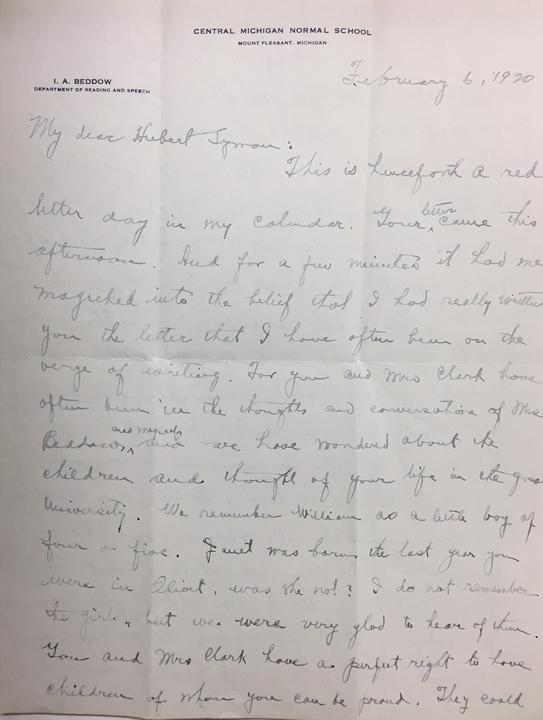 CENTRAL MICHIGAN NORMAL SCHOOL
MOUNT PLEASANT, MICHIGAN
I. A. BEDDOW
DEPARTMENT OF READING AND SPEECH
February 6, 1920
My dear Hubert Lyman:
This is henceforth a red
letter day in my calendar. Your letter came this
afternoon. And for a few minutes it had me
magicked into the belief that I had really written
you the letter that I have often been on the
verge of writing. For you and Mrs Clark have
often been in the thoughts and conversation of Mrs
Beddow, and myself and we have wondered about the
children and thought of your life in the great
University. We remember William as a little boy of
four or five. Janet was born the last year you
were in, was she not? I do not remember
the girls, but we were very glad to hear of them.
You and Mrs Clark have a perfect right to have
children of whom you can be proud. They could